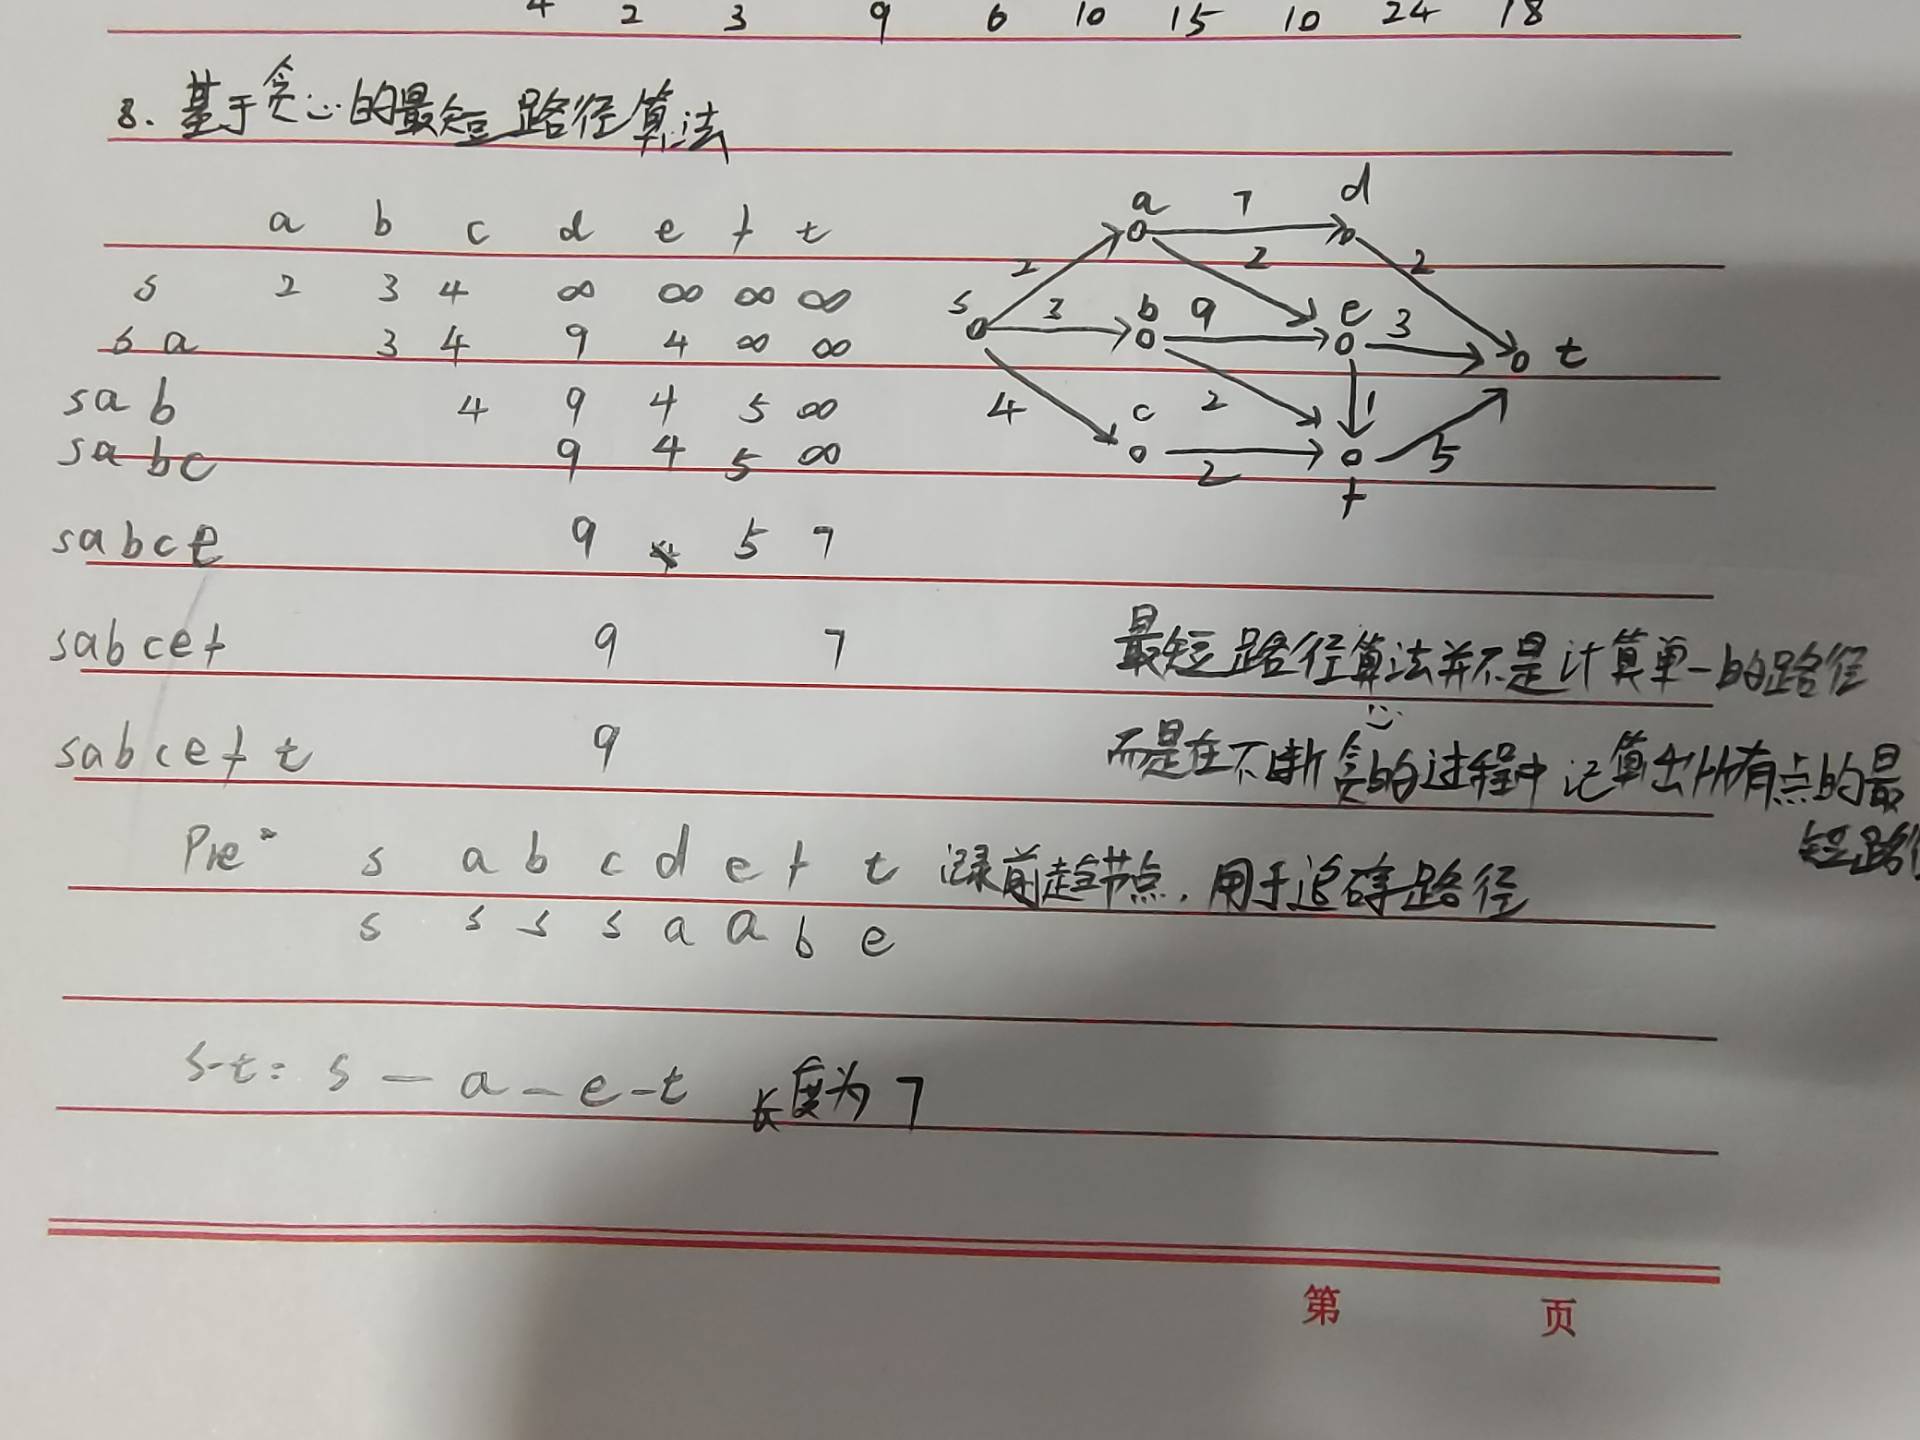 4 2 3 9 6 10 15 10 24 18
8. 基于贪心的最短路径算法
a b c d e f t
s 2 3 4 ∞ ∞ ∞ ∞
s a 3 4 9 4 ∞ ∞
s a b 4 9 4 5 ∞
s a b c 9 4 5 ∞
s a b c e 9 5 7
s a b c e f 9 7
s a b c e f t 9
a 7 d
2 2 2
s 3 b 9 e 3 t
4 c 2 1
2 5
f
最短路径算法并不是计算单一的路径
而是在不断贪心的过程中记算出所有点的最
短路径
Pre: s a b c d e f t 记录前趋节点，用于追踪路径
s s s s a a b e
s-t: s — a — e - t 长度为 7
第 页